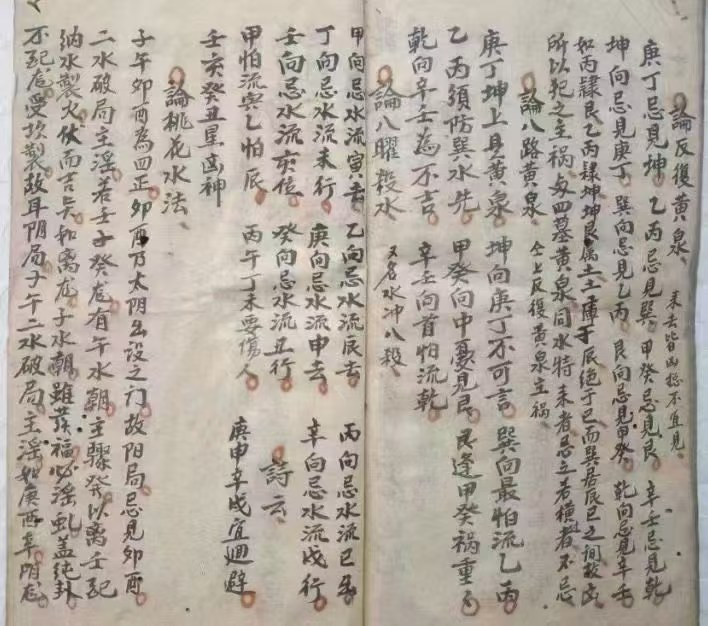 論反復黃泉 来去皆凶總不宜見
庚丁忌見坤 乙丙忌見巽 甲癸忌見艮 辛壬忌見乾
坤向忌見庚丁 巽向忌見乙丙 艮向忌見甲癸 乾向忌見辛壬
如丙隷艮乙丙隷坤坤艮属土土庫于辰绝于巳而巽居辰巳之间故凶
所以犯之主禍与四墓黄泉同水特来者忌立若横者不忌
論八路黄泉 仝上反復黄泉主祸
庚丁坤上是黄泉 坤向庚丁不可言 巽向最怕流乙丙
乙丙须防巽水先 甲癸向中憂見艮 艮逢甲癸祸重々
乾向辛壬為不吉 辛壬向首怕流乾
論八曜殺水 又名水冲八殺
甲向忌水流寅去 乙向忌水流辰去 丙向忌水流巳去
丁向忌水流未行 庚向忌水流申去 辛向忌水流戌行
壬向忌水流亥位 癸向忌水流丑行 詩云
甲怕流寅乙怕辰 丙午丁未要傷人 庚申辛戌宜迴避
壬亥癸丑星凶神
論桃花水法
子午卯酉為四正卯酉乃太阴出没之门故阳局忌見卯酉
二水破局主淫若壬子癸龙有午水朝主驟發以離壬
納水製火伏而吉兵和離龙子水朝雖發福必淫乱盖純卦
不犯龙受坎製故耳阴局子午二水破局主淫如庚酉辛阴龙